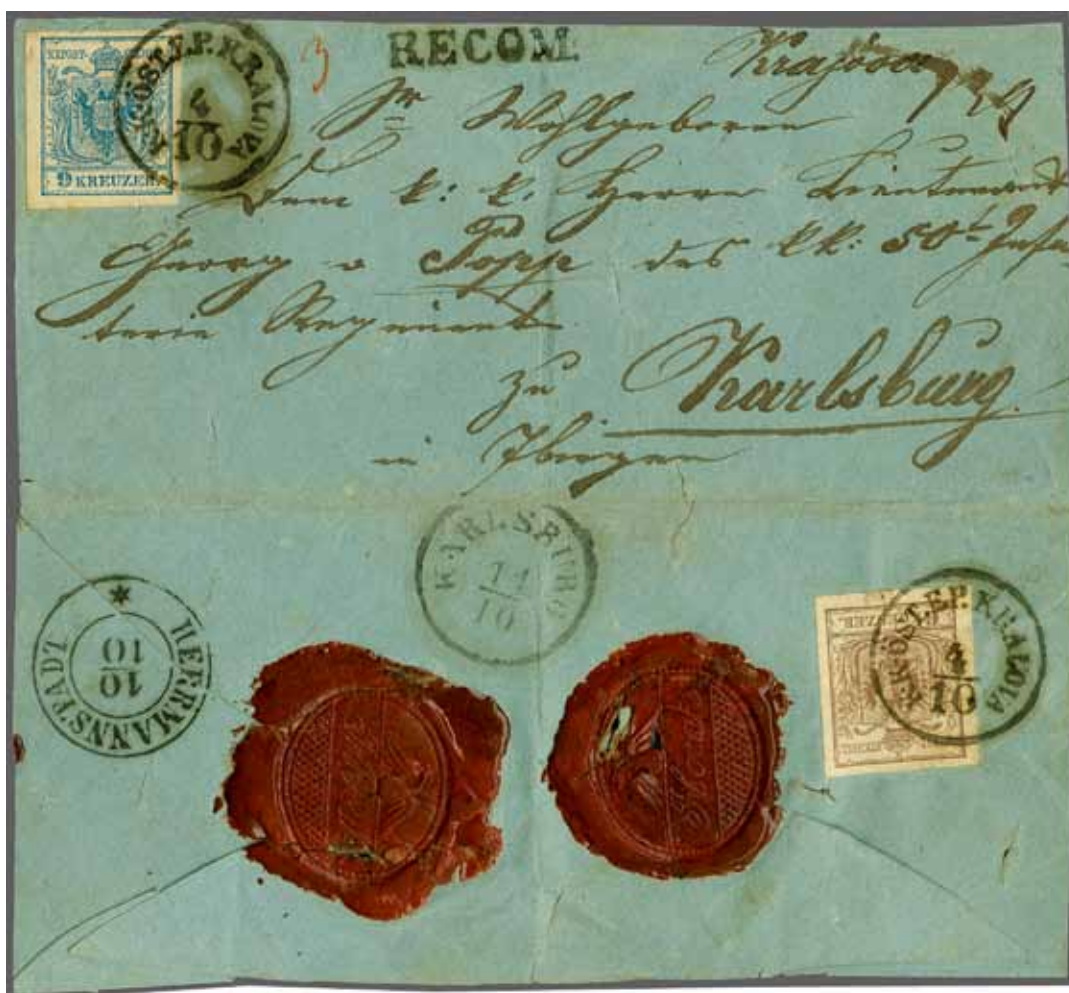 9 KREUZER.
K.K. ÖST. E.P. KRALOVA
4
10
3
RECOM.
Krajova
Sr Wohlgeboren
Dem k: k: Herrn Lieutenant
Georg v Popp des kk: 50t Infan
terie Regiments
zu Karlsburg
in Sbirgen
KARLSBURG
11
10
HERMANNSTADT
10
10
6 KREUZER.
K.K. ÖST. E.P. KRALOVA
4
10